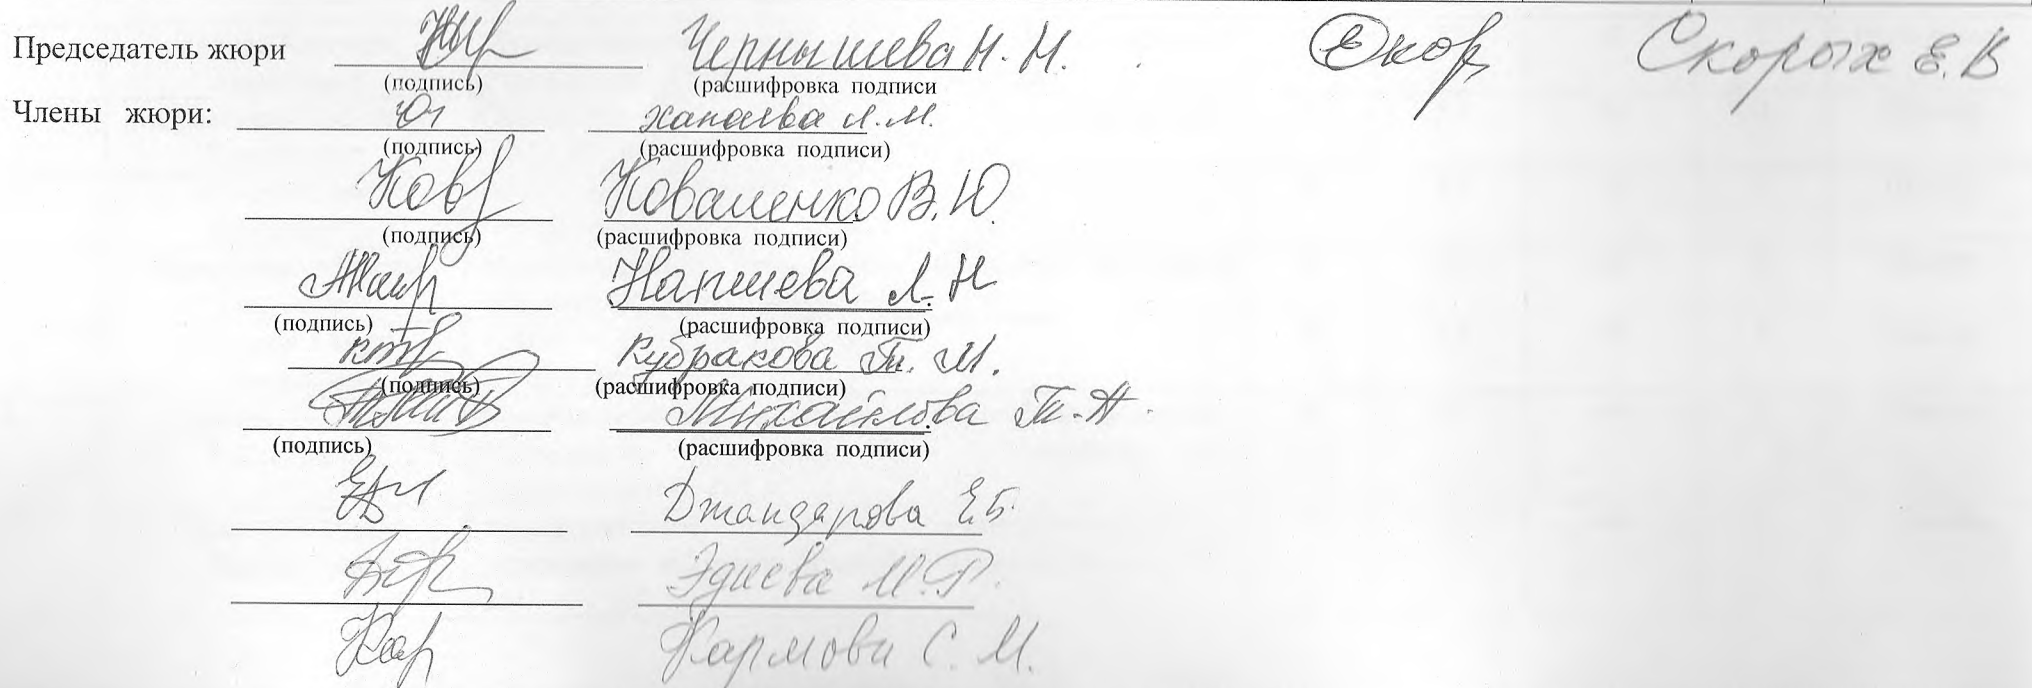 Председатель жюри Чернышева Н. Н. Скор Скорых Е. В
(подпись) (расшифровка подписи
Члены жюри: Хапаева Л. М.
(подпись) (расшифровка подписи)
Ков Коваленко В. Ю.
(подпись) (расшифровка подписи)
Напшева Л. Н
(подпись) (расшифровка подписи)
Кубракова Т. М.
(подпись) (расшифровка подписи)
Михайлова Т. А.
(подпись) (расшифровка подписи)
Джандарова Е. Б.
Эдиева М. Р.
Кар Кармова С. М.